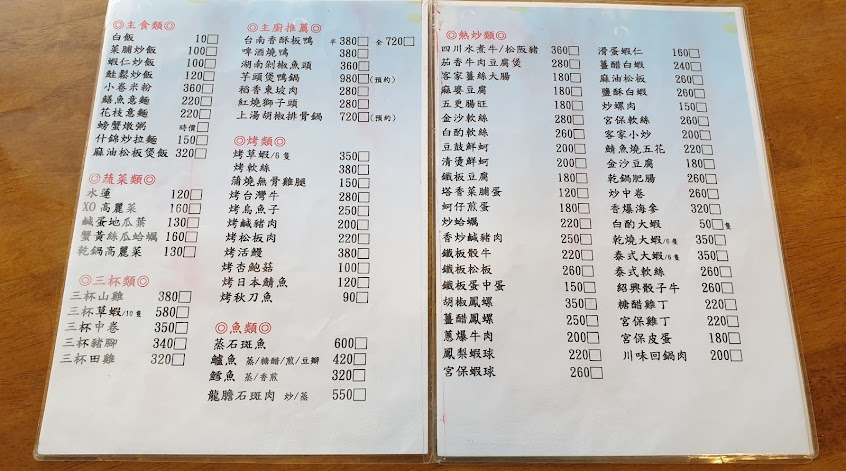 ◎主食類◎
白飯 10□
菜脯炒飯 100□
蝦仁炒飯 100□
鮭鬆炒飯 120□
小卷米粉 360□
鱔魚意麵 220□
花枝意麵 220□
螃蟹燉粥 時價□
什錦炒拉麵 150□
麻油松板煲飯 320□
◎蔬菜類◎
水蓮 120□
XO高麗菜 160□
鹹蛋地瓜葉 130□
蟹黃絲瓜蛤蠣 160□
乾鍋高麗菜 130□
◎三杯類◎
三杯山雞 380□
三杯草蝦/10隻 580□
三杯中卷 350□
三杯豬腳 340□
三杯田雞 320□
◎主廚推薦◎
台南香酥板鴨 半380□ 全720□
啤酒燒鴨 380□
湖南剁椒魚頭 360□
芋頭煲鴨鍋 980□(預約)
稻香東坡肉 280□
紅燒獅子頭 280□
上湯胡椒排骨鍋 720□(預約)
◎烤類◎
烤草蝦/6隻 350□
烤軟絲 380□
蒲燒無骨雞腿 150□
烤台灣牛 280□
烤烏魚子 250□
烤鹹豬肉 200□
烤松板肉 220□
烤活鰻 380□
烤杏鮑菇 100□
烤日本鯖魚 120□
烤秋刀魚 90□
◎魚類◎
蒸石斑魚 600□
鱸魚 蒸/糖醋/煎/豆瓣 420□
鱈魚 蒸/香煎 320□
龍膽石斑肉 炒/蒸 550□
◎熱炒類◎
四川水煮牛/松阪豬 360□
茄香牛肉豆腐煲 280□
客家薑絲大腸 180□
麻婆豆腐 180□
五更腸旺 280□
金沙軟絲 280□
白酌軟絲 260□
豆鼓鮮蚵 200□
清燙鮮蚵 200□
鐵板豆腐 180□
塔香菜脯蛋 120□
蚵仔煎蛋 180□
炒蛤蠣 220□
香炒鹹豬肉 250□
鐵板骰牛 220□
鐵板松板 260□
鐵板蛋中蛋 150□
胡椒鳳螺 350□
薑醋鳳螺 250□
蔥爆牛肉 200□
鳳梨蝦球 220□
宮保蝦球 260□
滑蛋蝦仁 160□
薑醋白蝦 240□
麻油松板 260□
鹽酥白蝦 260□
炒螺肉 150□
宮保軟絲 260□
客家小炒 200□
鯖魚燒五花 220□
金沙豆腐 180□
乾鍋肥腸 260□
炒中卷 260□
香爆海參 320□
白酌大蝦 50□隻
乾燒大蝦/6隻 350□
泰式大蝦/6隻 350□
泰式軟絲 260□
紹興骰子牛 260□
糖醋雞丁 220□
宮保雞丁 220□
宮保皮蛋 180□
川味回鍋肉 200□